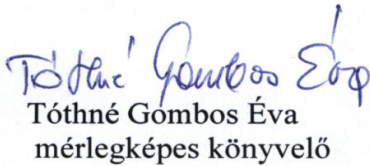 Tóthné Gombos Éva
Tóthné Gombos Éva
mérlegképes könyvelő